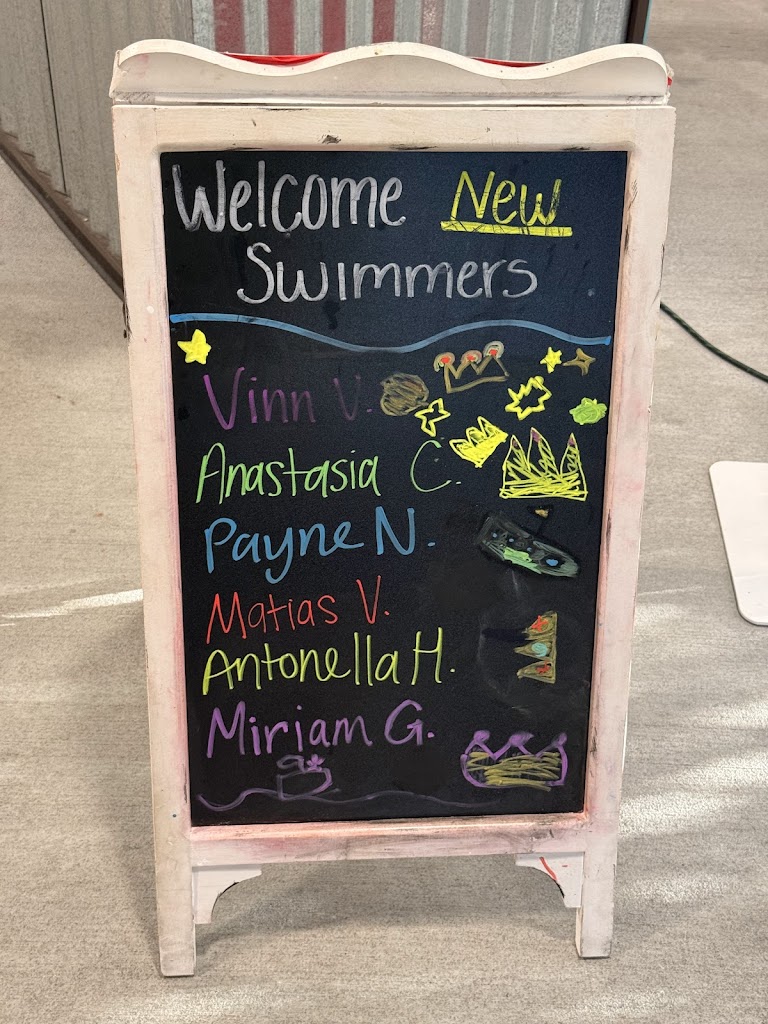 Welcome New
Swimmers
Vinn V.
Anastasia C.
Payne N.
Matias V.
Antonella H.
Miriam G.